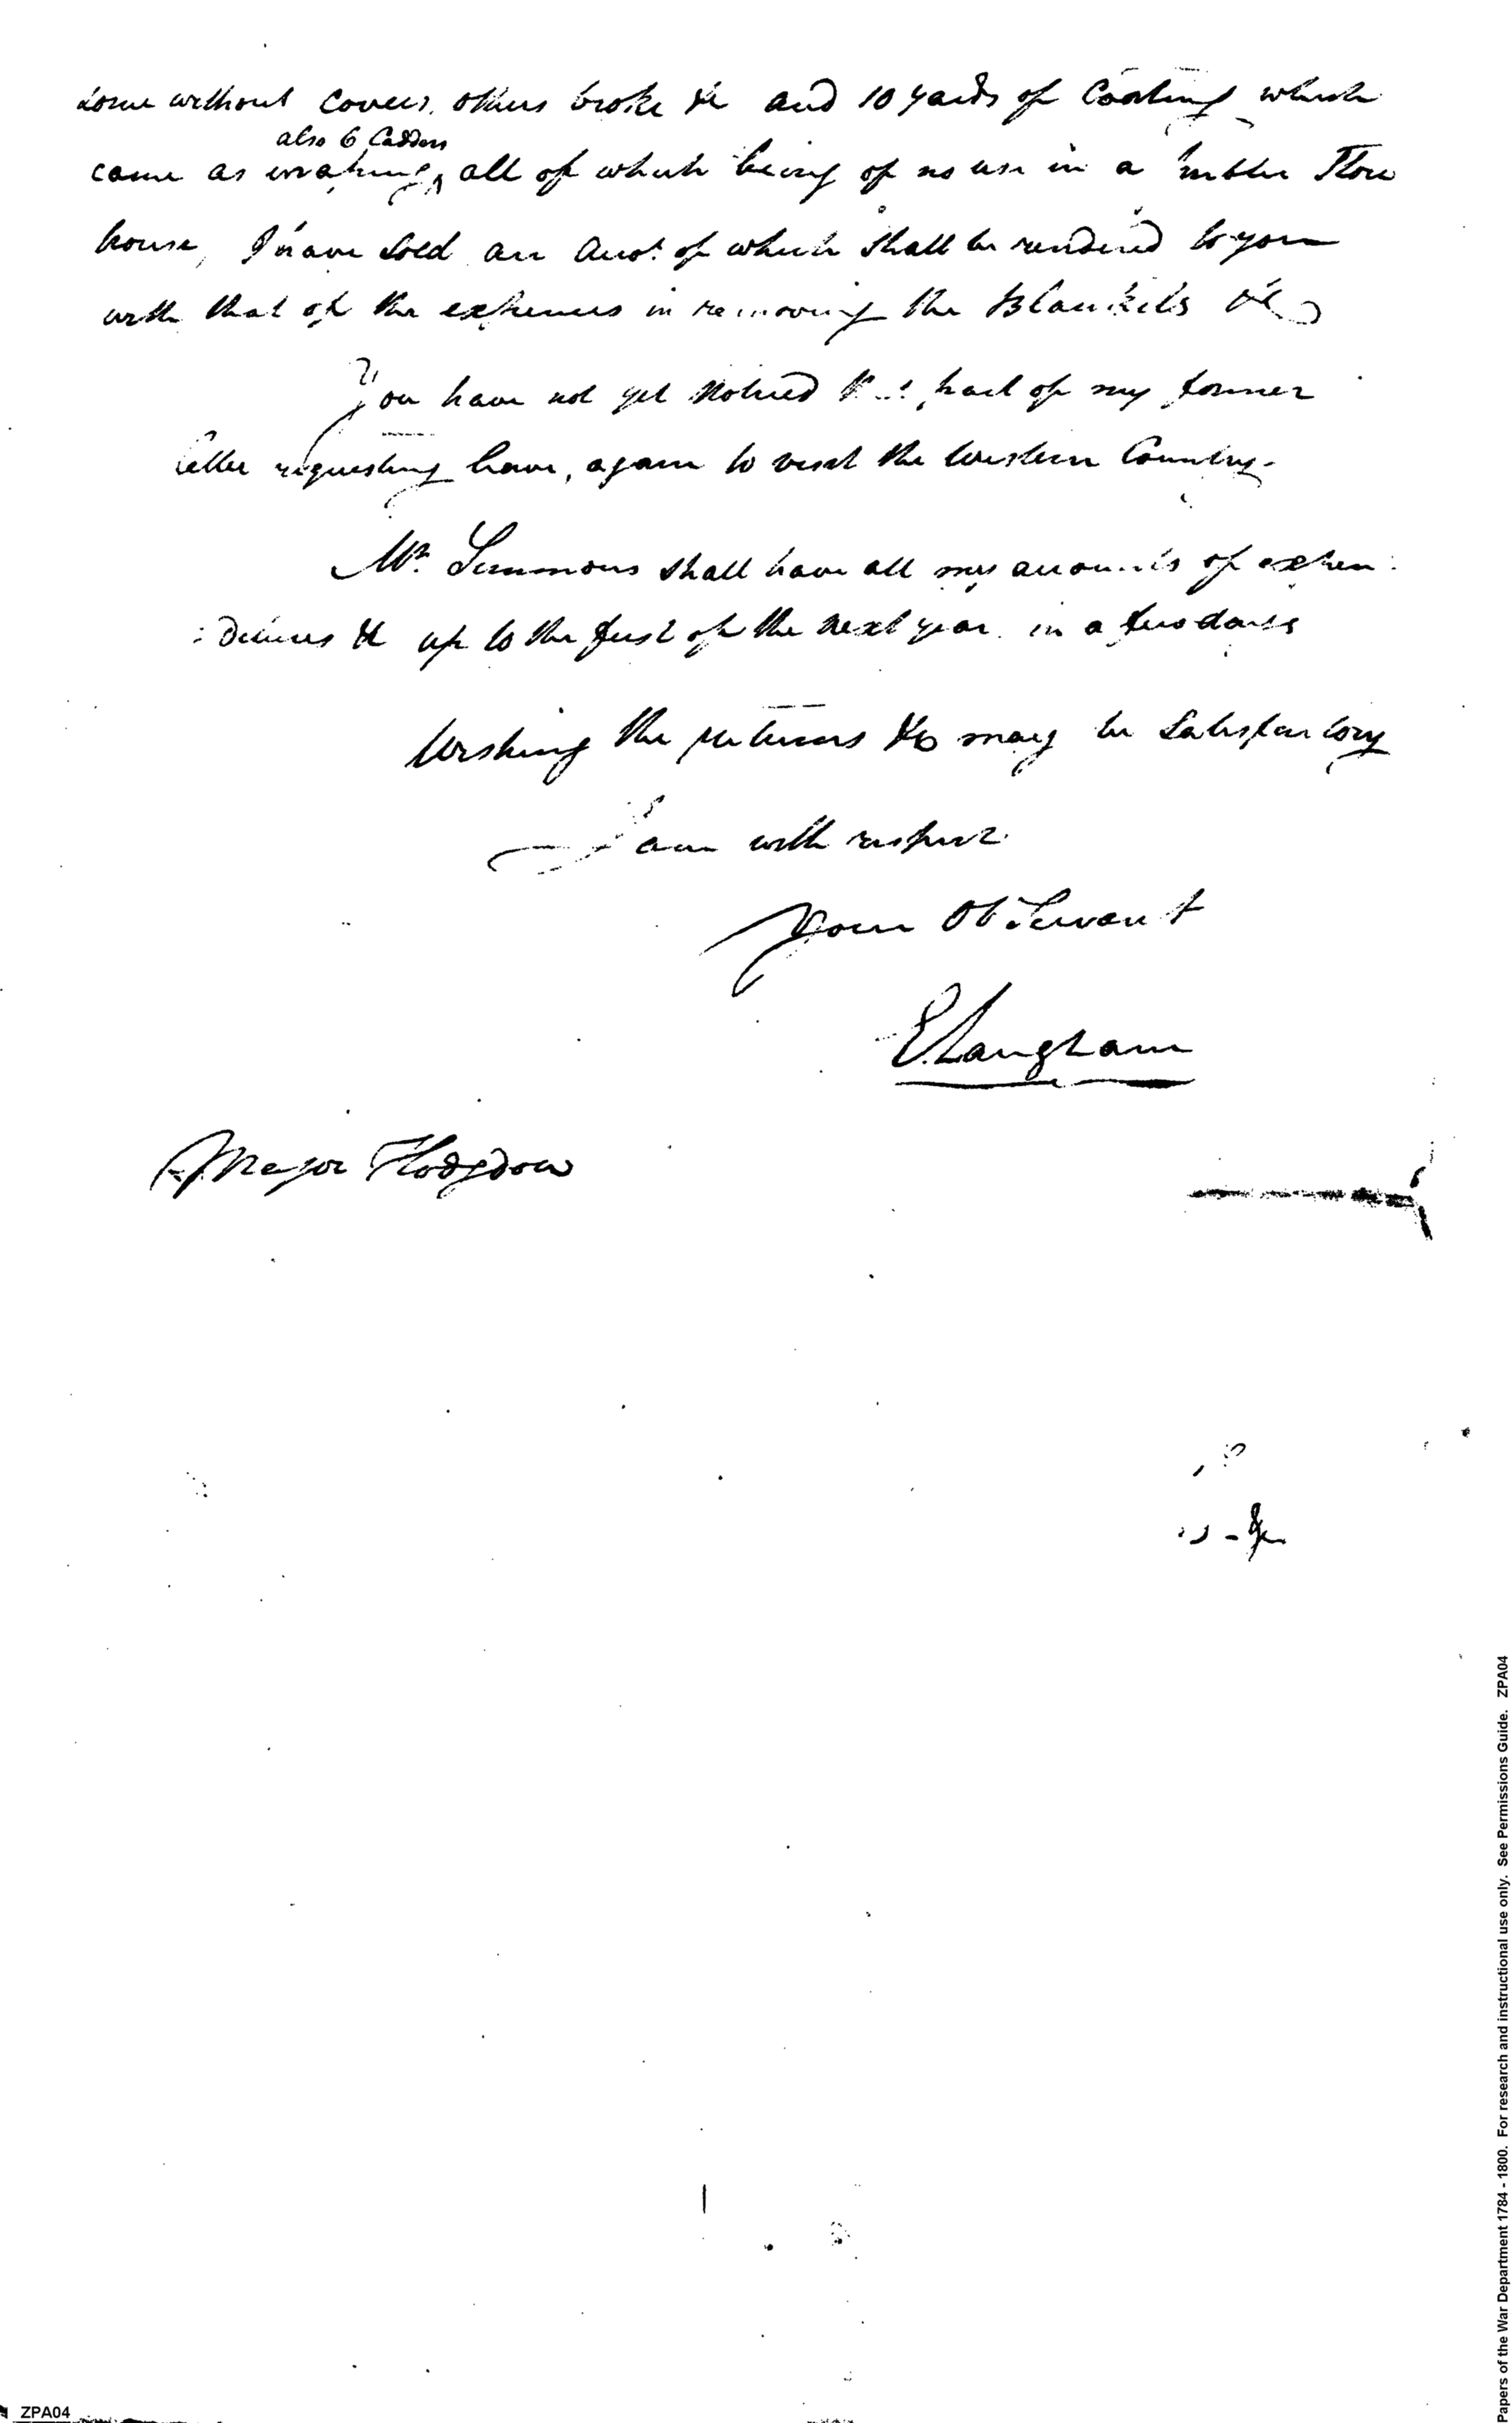 some without covers, others broke &c and 10 yards of Coating which
also 6 Cadders
came as wraping, all of which being of no use in a Public Store
house, I have Sold an Acot. of which Shall be rendered to you
with that of the expences in removing the Blankets &c
You have not yet Noticed that part of my former
letter requesting leave, again to visit the Western Country.
Mr. Simmons shall have all my accounts of expen:
:ditures &c up to the first of the next year in a few days
Wishing the returns &c may be Satisfactory
I am with respect
Your Ob Servant
E. Langham
Major Hodgdon
ZPA04
Papers of the War Department 1784 - 1800. For research and instructional use only. See Permissions Guide. ZPA04